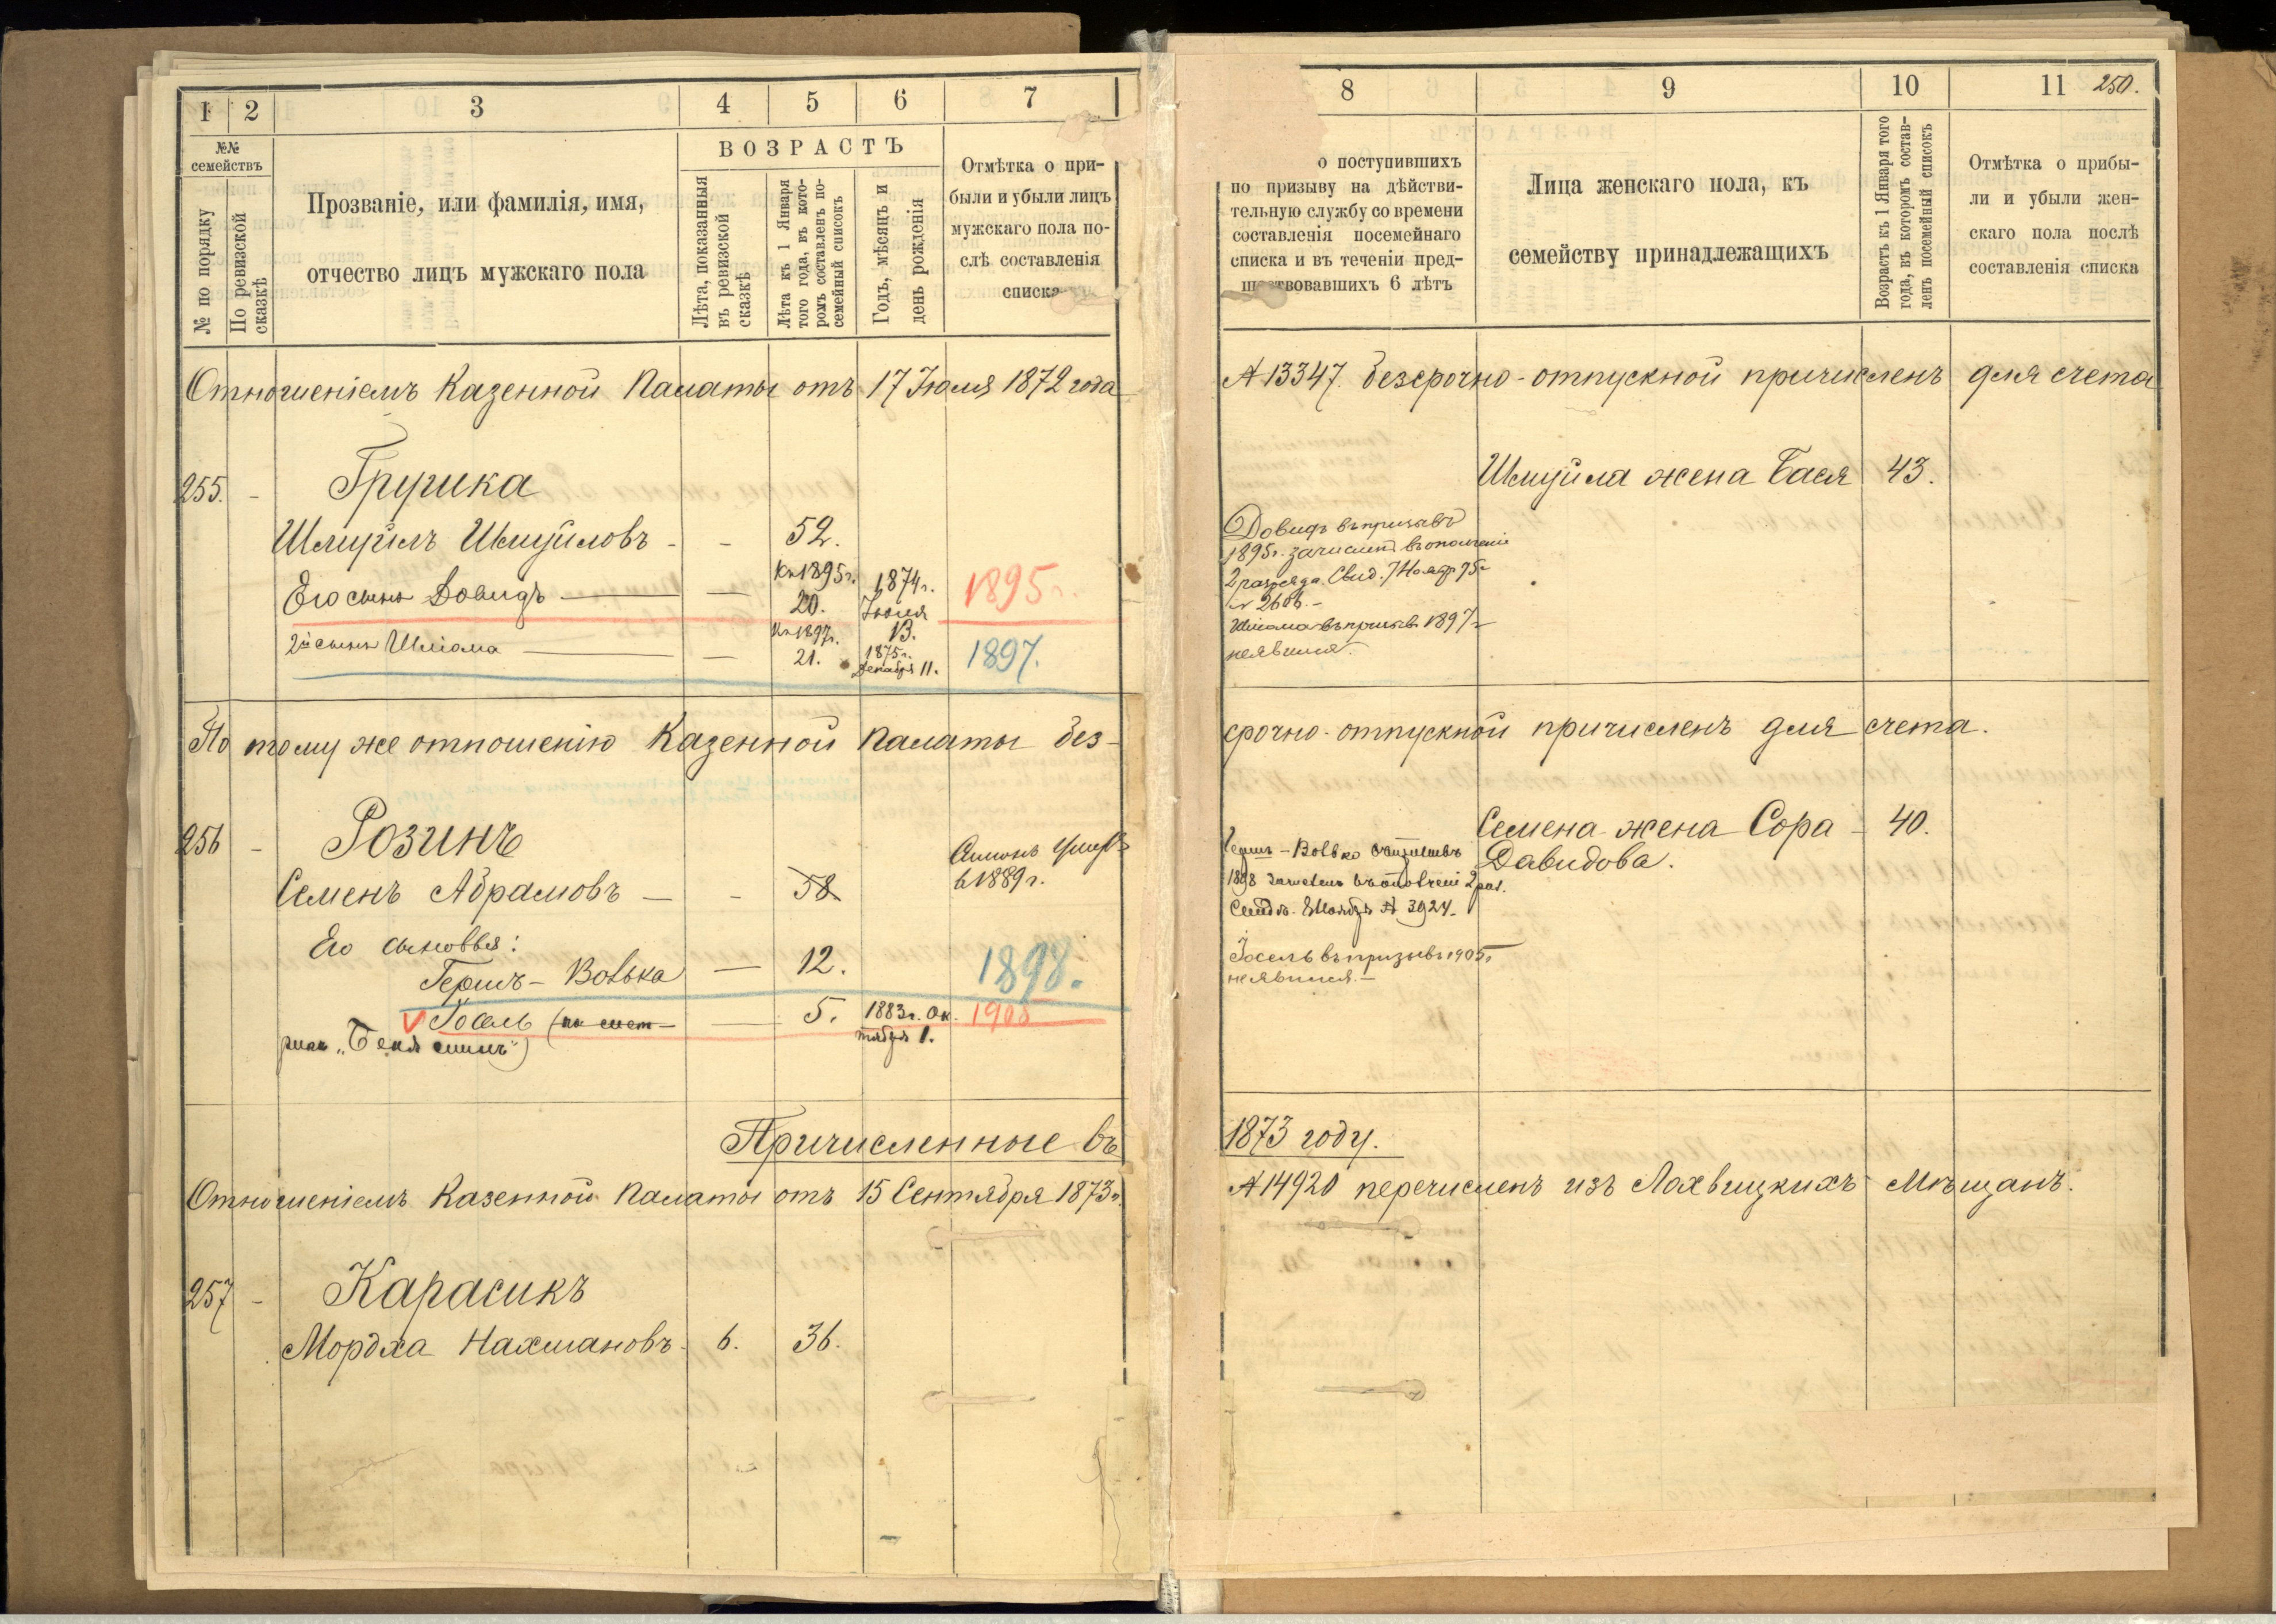 1 2 3 4 5 6 7
№№ семействъ
№ по порядку
По ревизской сказкѣ
Прозваніе, или фамилія, имя,
отчество лицъ мужскаго пола
ВОЗРАСТЪ
Лѣта, показанныя
въ ревизской
сказкѣ
Лѣта къ 1 Января
того года, въ кото-
ромъ составленъ по-
семейный списокъ
Годъ, мѣсяцъ и
день рожденія
Отмѣтка о при-
были и убыли лицъ
мужскаго пола по-
слѣ составленія
списка
Отношеніемъ Казенной Палаты отъ 17 Іюля 1872 года
255. -
Шмуйлъ Шмуйловъ - - 52.
Къ 1895 г. 1874 г.
Его сынъ Довидъ — — 20. Іюля 1895 г.
Къ 1897 г. 13.
2й сынъ Шліома — — 21. 1875 г. 1897.
Декабря 11.
По тому же отношенію Казенной Палаты без-
256 - Розинъ
Семенъ умеръ
Семенъ Абрамовъ — - 58 в 1889 г.
Его сыновья:
Гершъ - Вовька — 12. 1898.
V Іосель (по смет- — 5. 1883 г. Ок-
тября 1.
Причисленные въ
Отношеніемъ Казенной Палаты отъ 15 Сентября 1873 г.
257 - Карасикъ
Мордха Нахмановъ - 6. 36.
8 9 10 11 250.
о поступившихъ
по призыву на дѣйстви-
тельную службу со времени
составленія посемейнаго
списка и въ теченіи пред-
шествовавшихъ 6 лѣтъ
Лица женскаго пола, къ
семейству принадлежащихъ
Возрастъ къ 1 Января того
года, въ которомъ состав-
ленъ посемейный списокъ
Отмѣтка о прибы-
ли и убыли жен-
скаго пола послѣ
составленія списка
№ 13347. безсрочно-отпускной причисленъ для счета
Шмуйла жена Бася 43.
Довидъ въ призывъ
1895 г. зачисленъ въ ополченіе
2 разряда. Свид. 7 Нояб. 95 г.
Шліома въ призывъ 1897 г.
неявился.
срочно-отпускной причисленъ для счета.
Семена жена Сора - 40.
Давидова.
Гершъ - Вовько въ
1898 зачисленъ въ ополченіе 2 раз.
№ 3924.
Іосель въ призывъ 1905 г.
неявился. -
1873 году.
№ 14920 перечисленъ изъ Лохвицкихъ Мѣщанъ.